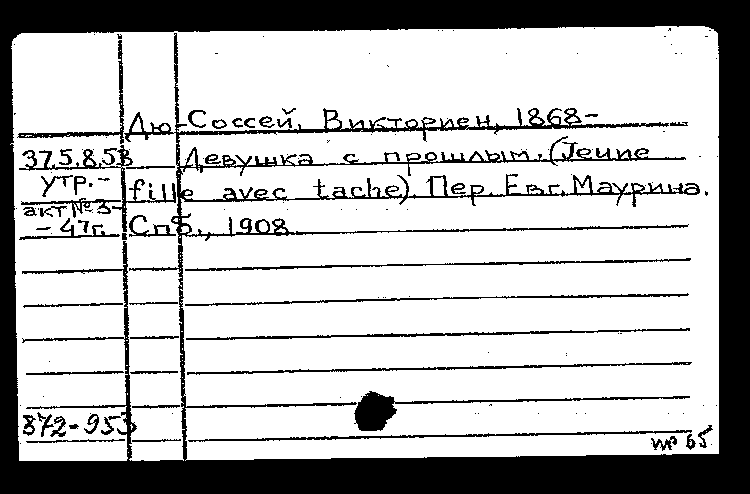 Дю-Соссей, Викториен, 1868-
37.5.8.53 Девушка с прошлым. (Jeune
утр.- fille avec tache). Пер. Евг. Маурина.
акт №3-
- 47г. Спб., 1908
872-953
пр 65